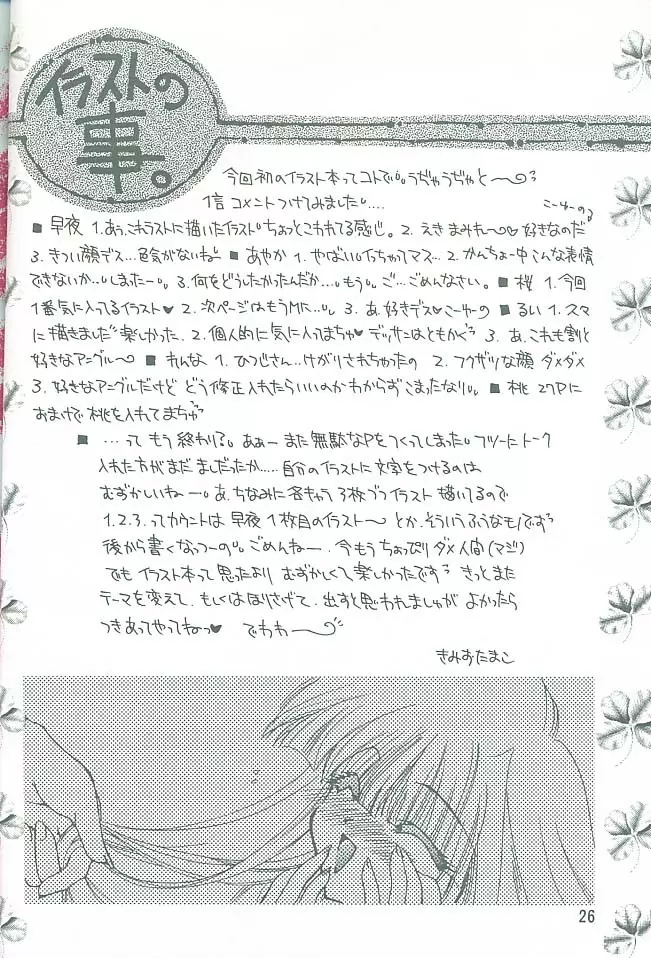 イラストの
事。
今回初のイラスト本ってコトで。うぢゃうぢゃと〜
1言コメントつけてみました。….
■早夜 1.あぅ、これラストに描いたイラスト。ちょっとこわれてる感じ。2. えき まみれ〜♡ 好きなのだ
3. きつい顔デス…色会がないねー ■ あやか 1. やばい。イっちゃってマス… 2. かんちょー中 こんな表情
できないか…。しまったー。。3. 何をどうしたかったんだか…。もう。ご…ごめんなさい。■ 桜 1. 今回
1番気に入ってるイラスト♥ 2. 次ページはもうMに…。 3. あ、好きデス♥
■ るい 1. スマ
に描きました 楽しかった. 2. 個人的に気に入ってまちゅ♥ デッサンはともかく 3. あ、これも割と
好きなアングル〜 ■ れんな 1. ひつじさん…けがりされちゃったの 2. フクザツな顔 ダメダメ
3. 好きなアングルだけど どう修正入れたらいいのかわからずこまったなり。■ 桃 27Pに
おまけで桃を入れてまちゅ
■ …って もう終わり?。あぁー また無駄なPをつくってしまった。フツーにトーク
入れた方がまだ ましだったか….. 自分のイラストに文字をつけるのは
むずかしいねー。あ、ちなみに各キャラ3枚づつイラスト 描いてるので
1.2.3.ってカウントは 早夜 1枚目のイラスト〜 とか、そういうふうなモノです
後から書くなっつーの。。ごめんねー. 今もうちょっぴりダメ人間(マジ)
でも イラスト本って思ったより むずかしくて楽しかったです きっとまた
テーマを変えて、もしくはほりさげて、出すと思われましゅが よかったら
つきあってやってねっ♥ でわわ〜
きみおたまこ
26